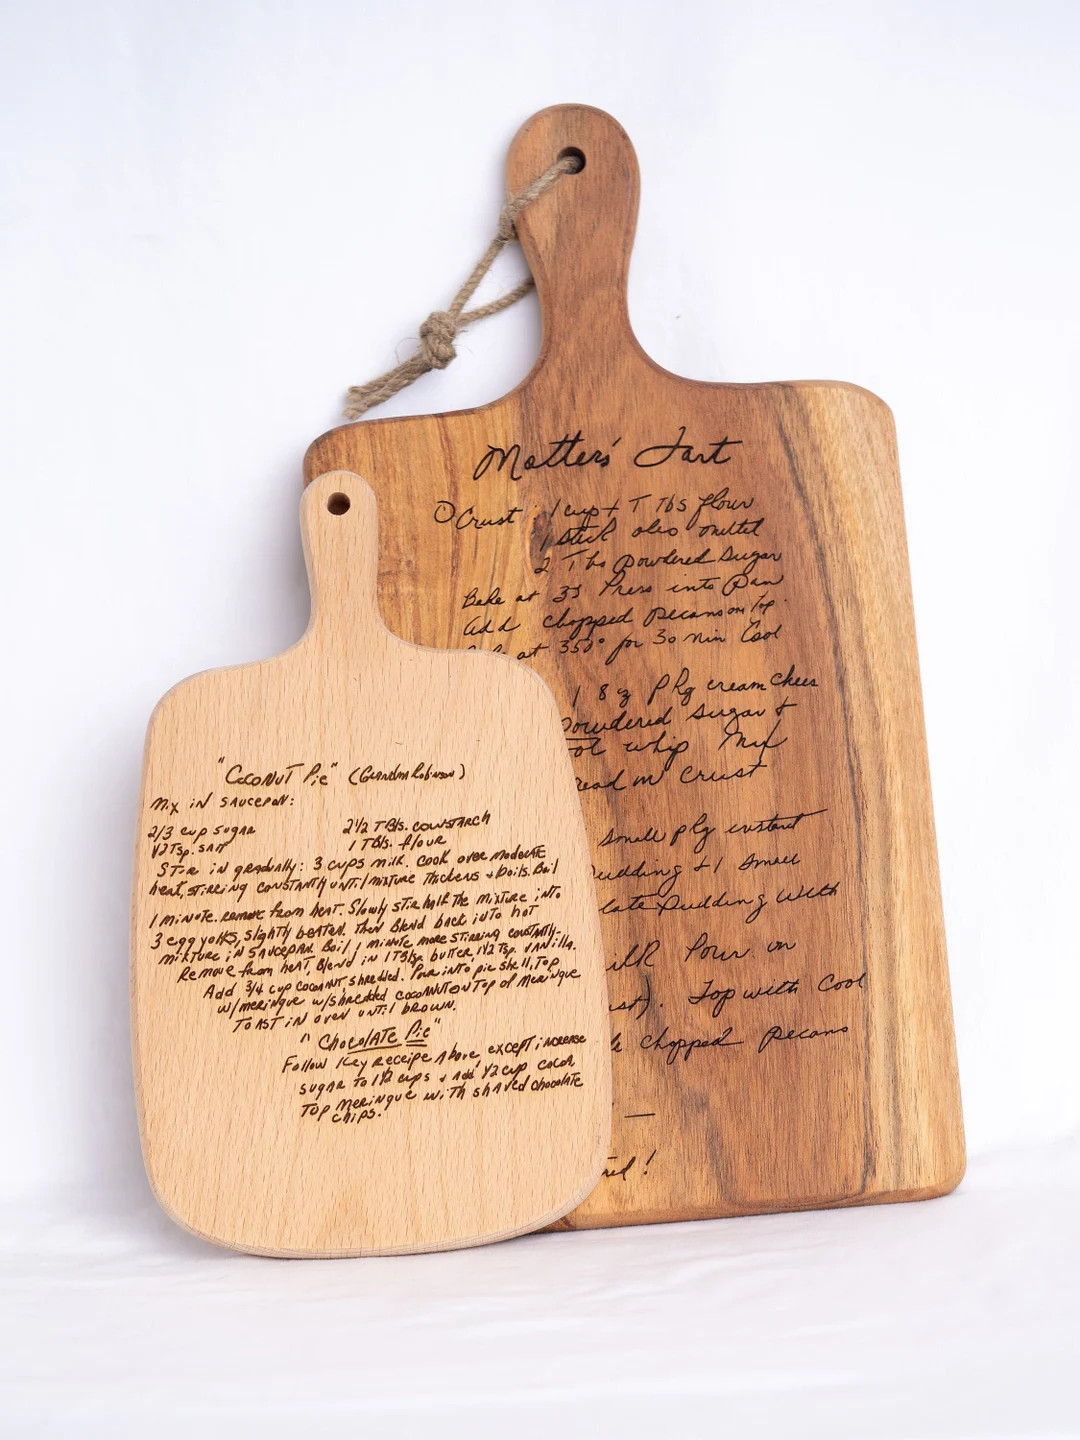 "Coconut Pie" (Grandma Robinson)
Mix in saucepan:
2/3 cup sugar 2 1/2 TBls. cornstarch
1/2 Tsp. salt 1 TBls. flour
Stir in gradually: 3 cups milk. Cook over moderate
heat, stirring constantly until mixture thickens + boils. Boil
1 minute. remove from heat. Slowly stir half the mixture into
3 egg yolks, slightly beaten. Then Blend back into hot
mixture in saucepan. Boil 1 minute more stirring constantly.
Remove from heat, Blend in 1 butter, 1 1/2 Tsp. vanilla.
Add 3/4 cup coconut, shredded. Pour into pie shell, Top
w/ meringue w/ shredded coconut on Top of Meringue
Toast in oven until brown.
"Chocolate Pie"
Follow Key receipe Above except increase
sugar to 1 1/2 cups + Add 1/2 cup
Top Meringue with shaved chocolate
chips.
Tart
Crust : 1 cup + T Tbs flour
1 stick oleo melted
2 Tbs powdered sugar
Bake at 35 Press into Pan
add chopped pecans on top.
at 350° for 30 min Cool
1 8 oz pkg cream chees
powdered sugar +
whip Mix
in crust
small pkg instant
pudding + 1 small
pudding with
Pour on
Top with Cool
chopped pecans
—
!